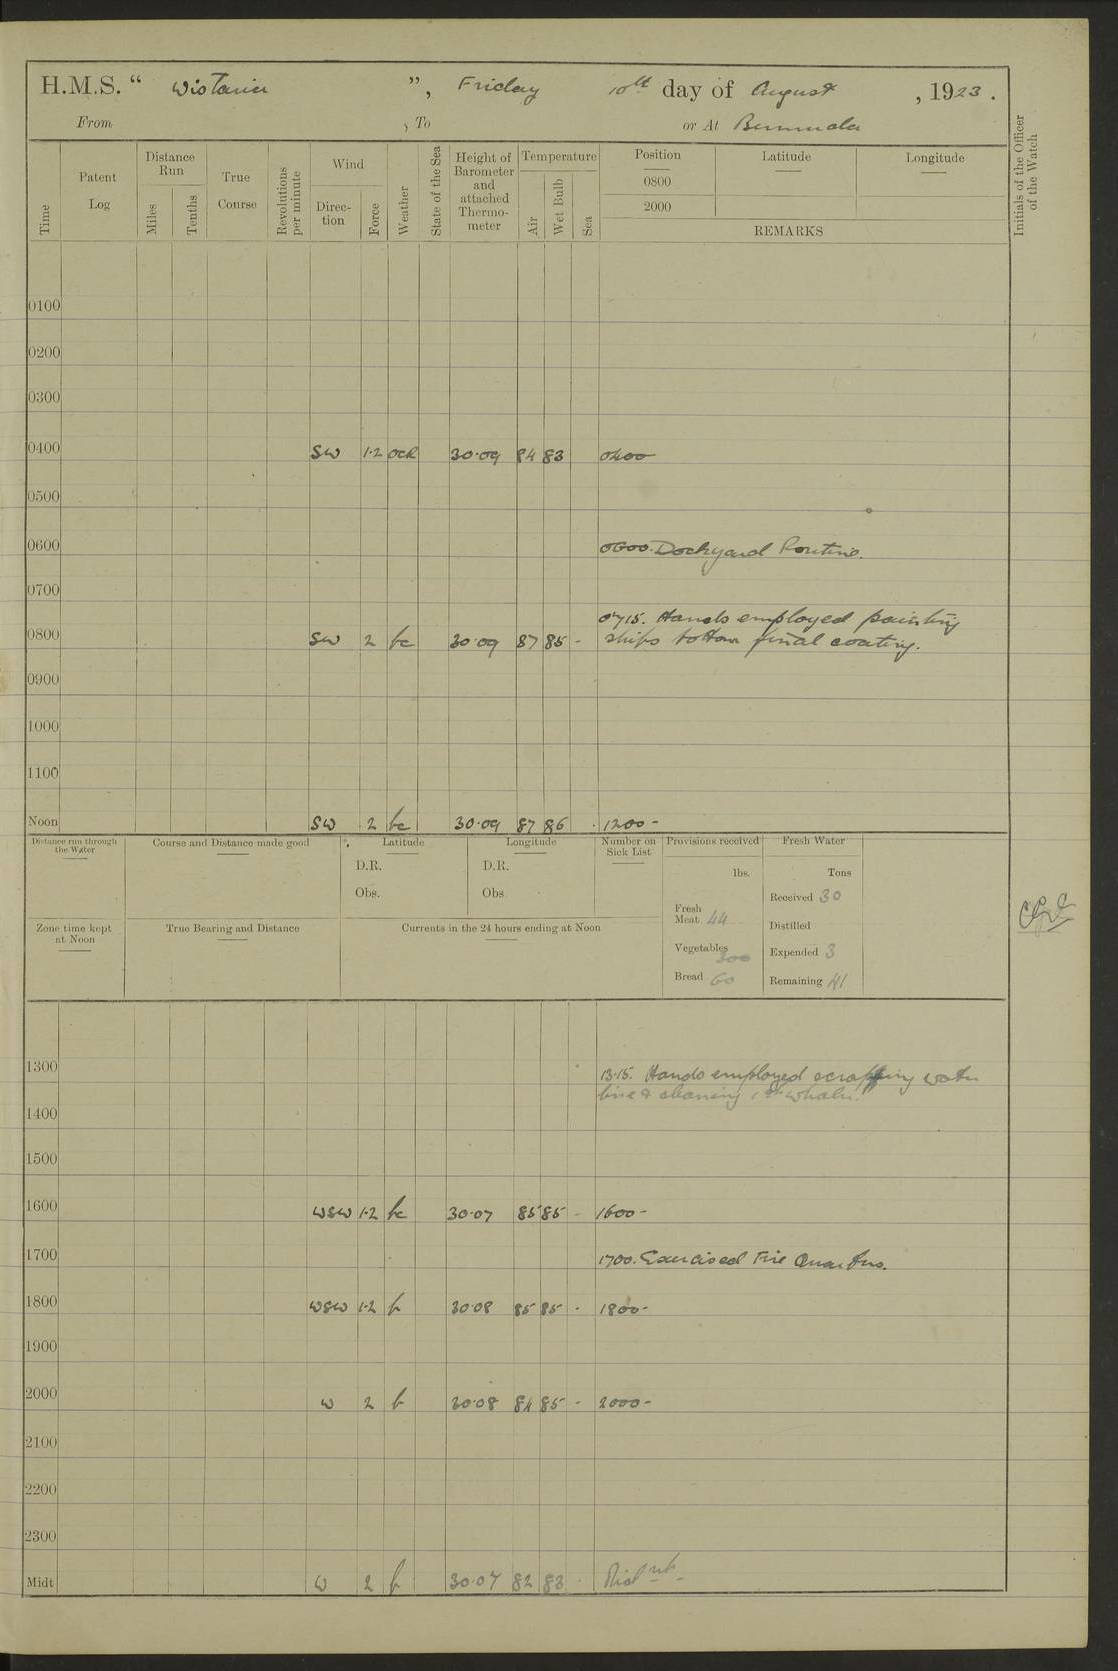 H.M.S. “ Wistaria ”, Friday 10th day of August, 1923.
From , To or At Bermuda
Time
Patent Log
Distance Run
Miles
Tenths
True Course
Revolutions per minute
Wind
Direc-tion
Force
Weather
State of the Sea
Height of Barometer and attached Thermo-meter
Temperature
Air
Wet Bulb
Sea
Position
0800
2000
Latitude
Longitude
REMARKS
Initials of the Officer of the Watch
0100
0200
0300
0400 SW 1·2 30·09 84 83 0400
0500
0600 0600. Dockyard Routine.
0700
0715. Hands employed painting
0800 SW 2 bc 30·09 87 85 - ships bottom final coating.
0900
1000
1100
Noon SW 2 bc 30·09 87 86 1200 -
Distance run through the Water
Course and Distance made good
Latitude
D.R.
Obs.
Longitude
D.R.
Obs
Number on Sick List
Provisions received
lbs.
Fresh Meat 44
Vegetables 300
Bread 60
Fresh Water
Tons
Received 30
Distilled
Expended 3
Remaining 41
Zone time kept at Noon
True Bearing and Distance
Currents in the 24 hours ending at Noon
1300 1315. Hands employed scrapping water
line & cleaning whaler.
1400
1500
1600 WSW 1·2 bc 30·07 85 85 - 1600 -
1700 1700. Exercised Fire Quarters.
1800 WSW 1·2 b 30·08 85 85 - 1800 -
1900
2000 W 2 b 30·08 84 85 - 2000 -
2100
2200
2300
Midt W 2 b 30·07 82 83 Midnt -